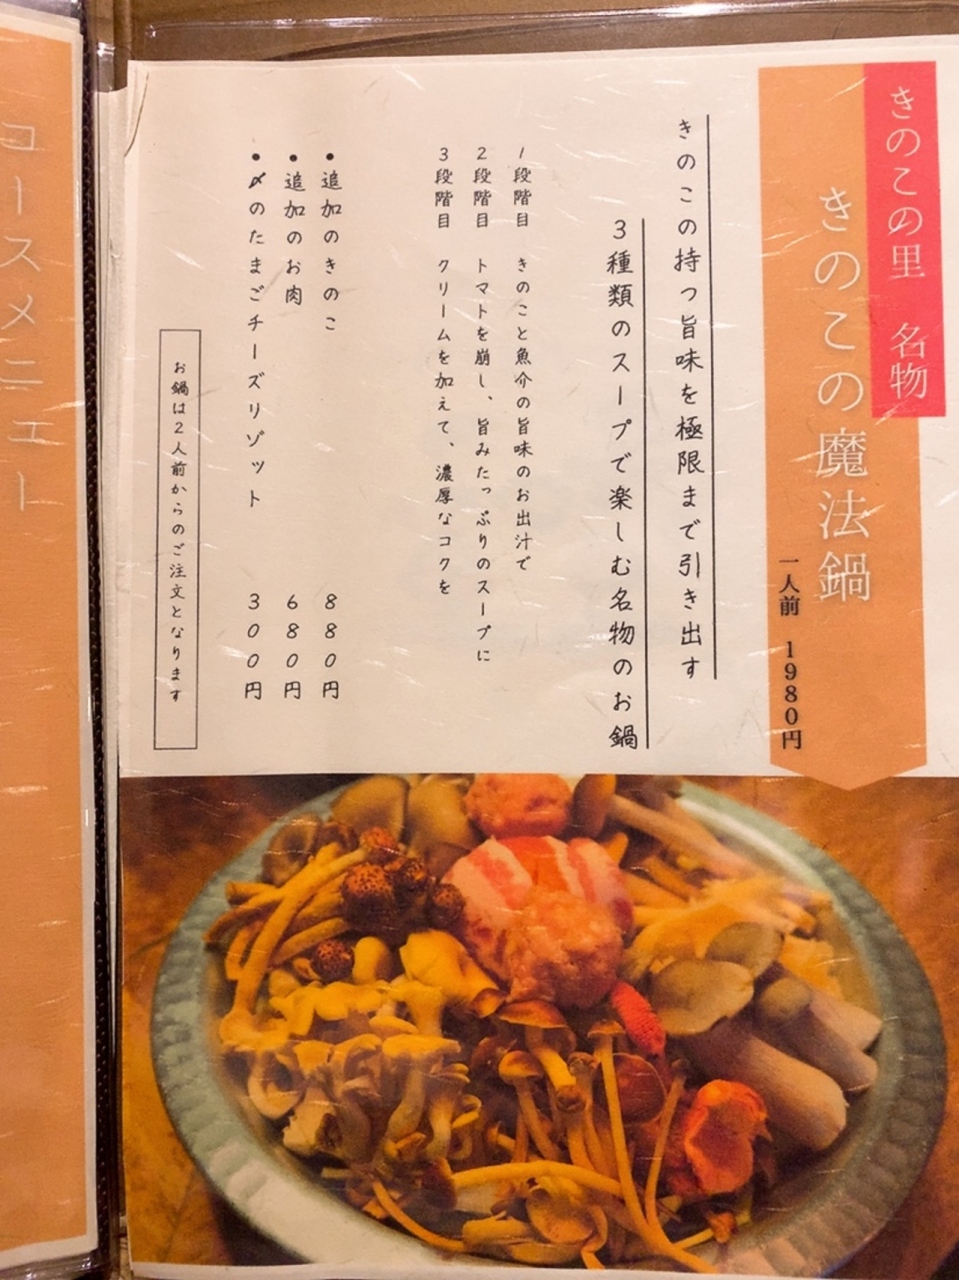 きのこの里 名物
きのこの魔法鍋
一人前 1980円
きのこの持つ旨味を極限まで引き出す
3種類のスープで楽しむ名物のお鍋
1段階目 きのこと魚介の旨味のお出汁で
2段階目 トマトを崩し、旨みたっぷりのスープに
3段階目 クリームを加えて、濃厚なコクを
●追加のきのこ 880円
●追加のお肉 680円
●〆のたまごチーズリゾット 300円
お鍋は2人前からのご注文となります
コースメニュー ト